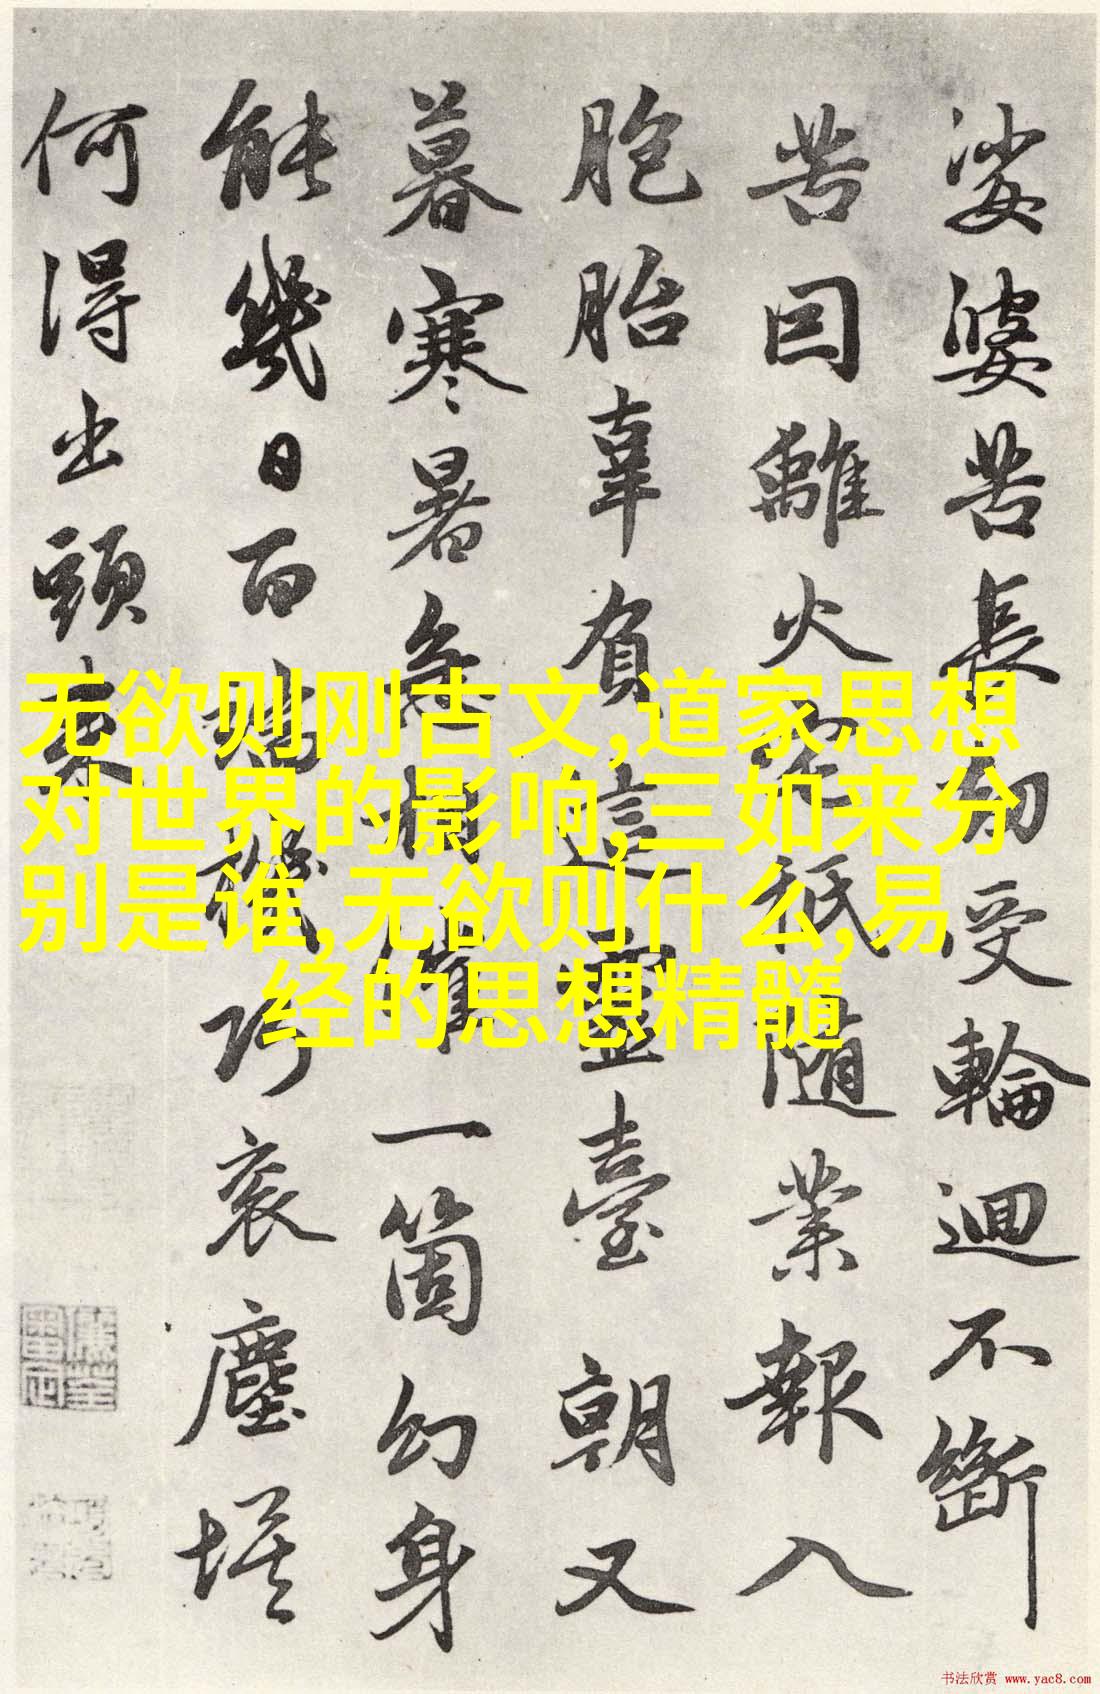 娑婆苦長劫受輪迴不斷
苦因離火宅秖随業報入
胞胎辜負這靈臺朝又
暮寒暑急相催一箇幻身
能幾日百端機巧衮塵埃
何得出頭来
无欲则刚古文,道家思想
对世界的影响,三如来分
别是谁,无欲则什么,易
经的思想精髓
书法欣赏 www.yac8.com